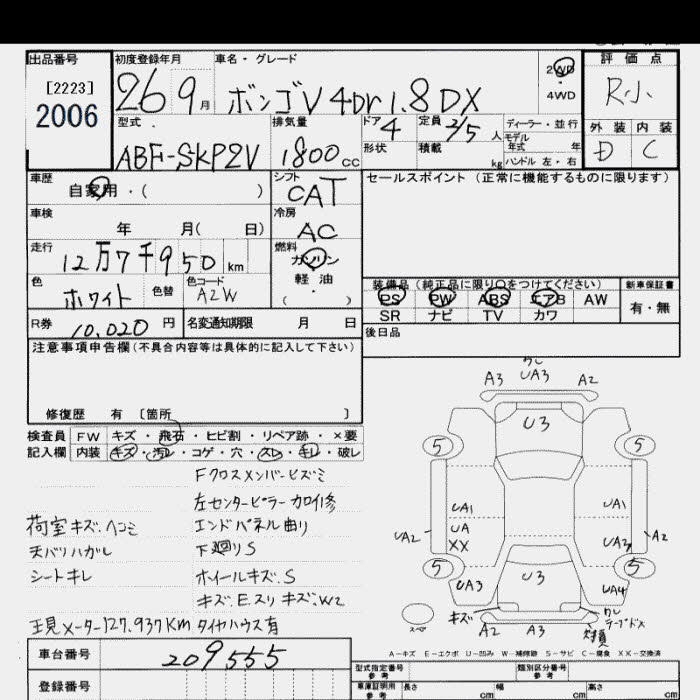 出品番号 初度登録年月 車名・グレード 評価点
[2223]
2006
26 9月 ボンゴV 4Dr 1.8DX 2WD R小
4WD
型式 排気量 ドア 4 定員 2/5人 ディーラー・並行 外装 内装
モデル年式 年
ABF-SKP2V 1800cc 形状 積載 kg ハンドル 左・右 D C
車歴 シフト セールスポイント（正常に機能するものに限ります）
自家用・（ ） CAT
車検 冷房
年 月（ 日） AC
走行 燃料
12万7千950km ガソリン
色 色替 色コード 軽油
ホワイト A2W ・（ ）
装備品（純正品に限り○をつけてください） 新車保証書
PS PW ABS エアB AW 有・無
SR ナビ TV カワ
R券 10,020円 名変通知期限 月 日 後日品
注意事項申告欄（不具合内容等は具体的に記入して下さい）
修復歴 有〔箇所 〕
検査員 FW キズ・飛石・ヒビ割・リペア跡・×要
記入欄 内装 キズ・汚レ・コゲ・穴・スレ・キレ・破レ
Fクロスメンバーヒズミ
左センターピラーカロイ修
荷室キズ、ヘコミ エンドパネル曲り
天バリハガレ 下廻りS
シートキレ ホイールキズ.S
キズ.E.スリキズ.W2
現メーター127.937Km タイヤハウス有
ワレ
A3 UA3 A2
U3
5 5
UA1 UA1
UA2 UA XX UA3 A2
5 5
UA3 U3 UA4
キズ ワレ
スペア A2 A3 テープドメ
A-キズ E-エクボ U-凹み W-補修跡 S-サビ C-腐食 XX-交換済
車台番号 209555
型式指定番号 参考 類別区分番号 参考
登録番号 車庫証明用 参考 長さ cm 幅 cm 高さ cm